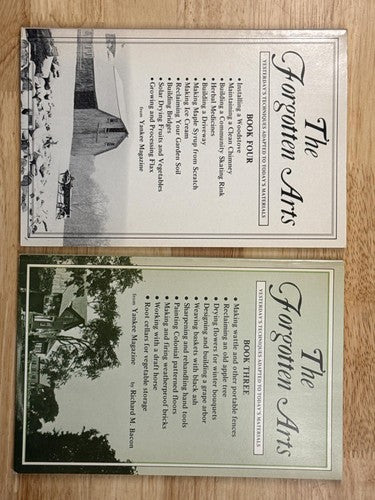 The
Forgotten Arts
YESTERDAY'S TECHNIQUES ADAPTED TO TODAY'S MATERIALS
BOOK FOUR
• Installing a Woodstove
• Maintaining a Clean Chimney
• Building a Community Skating Rink
• Herbal Medicines
• Building a Driveway
• Making Maple Syrup from Scratch
• Making Ice Cream
• Reclaiming Your Garden Soil
• Building Bridges
• Solar Drying Fruits and Vegetables
• Growing and Processing Flax
from Yankee Magazine
The
Forgotten Arts
YESTERDAY'S TECHNIQUES ADAPTED TO TODAY'S MATERIALS
BOOK THREE
• Making wattle and other portable fences
• Reclaiming an old apple tree
• Drying flowers for winter bouquets
• Designing and building a grape arbor
• Weaving baskets with black ash
• Sharpening and rehandling hand tools
• Painting Colonial patterned floors
• Making and firing weatherproof bricks
• Working with a draft horse
• Root cellars for vegetable storage
from Yankee Magazine by Richard M. Bacon